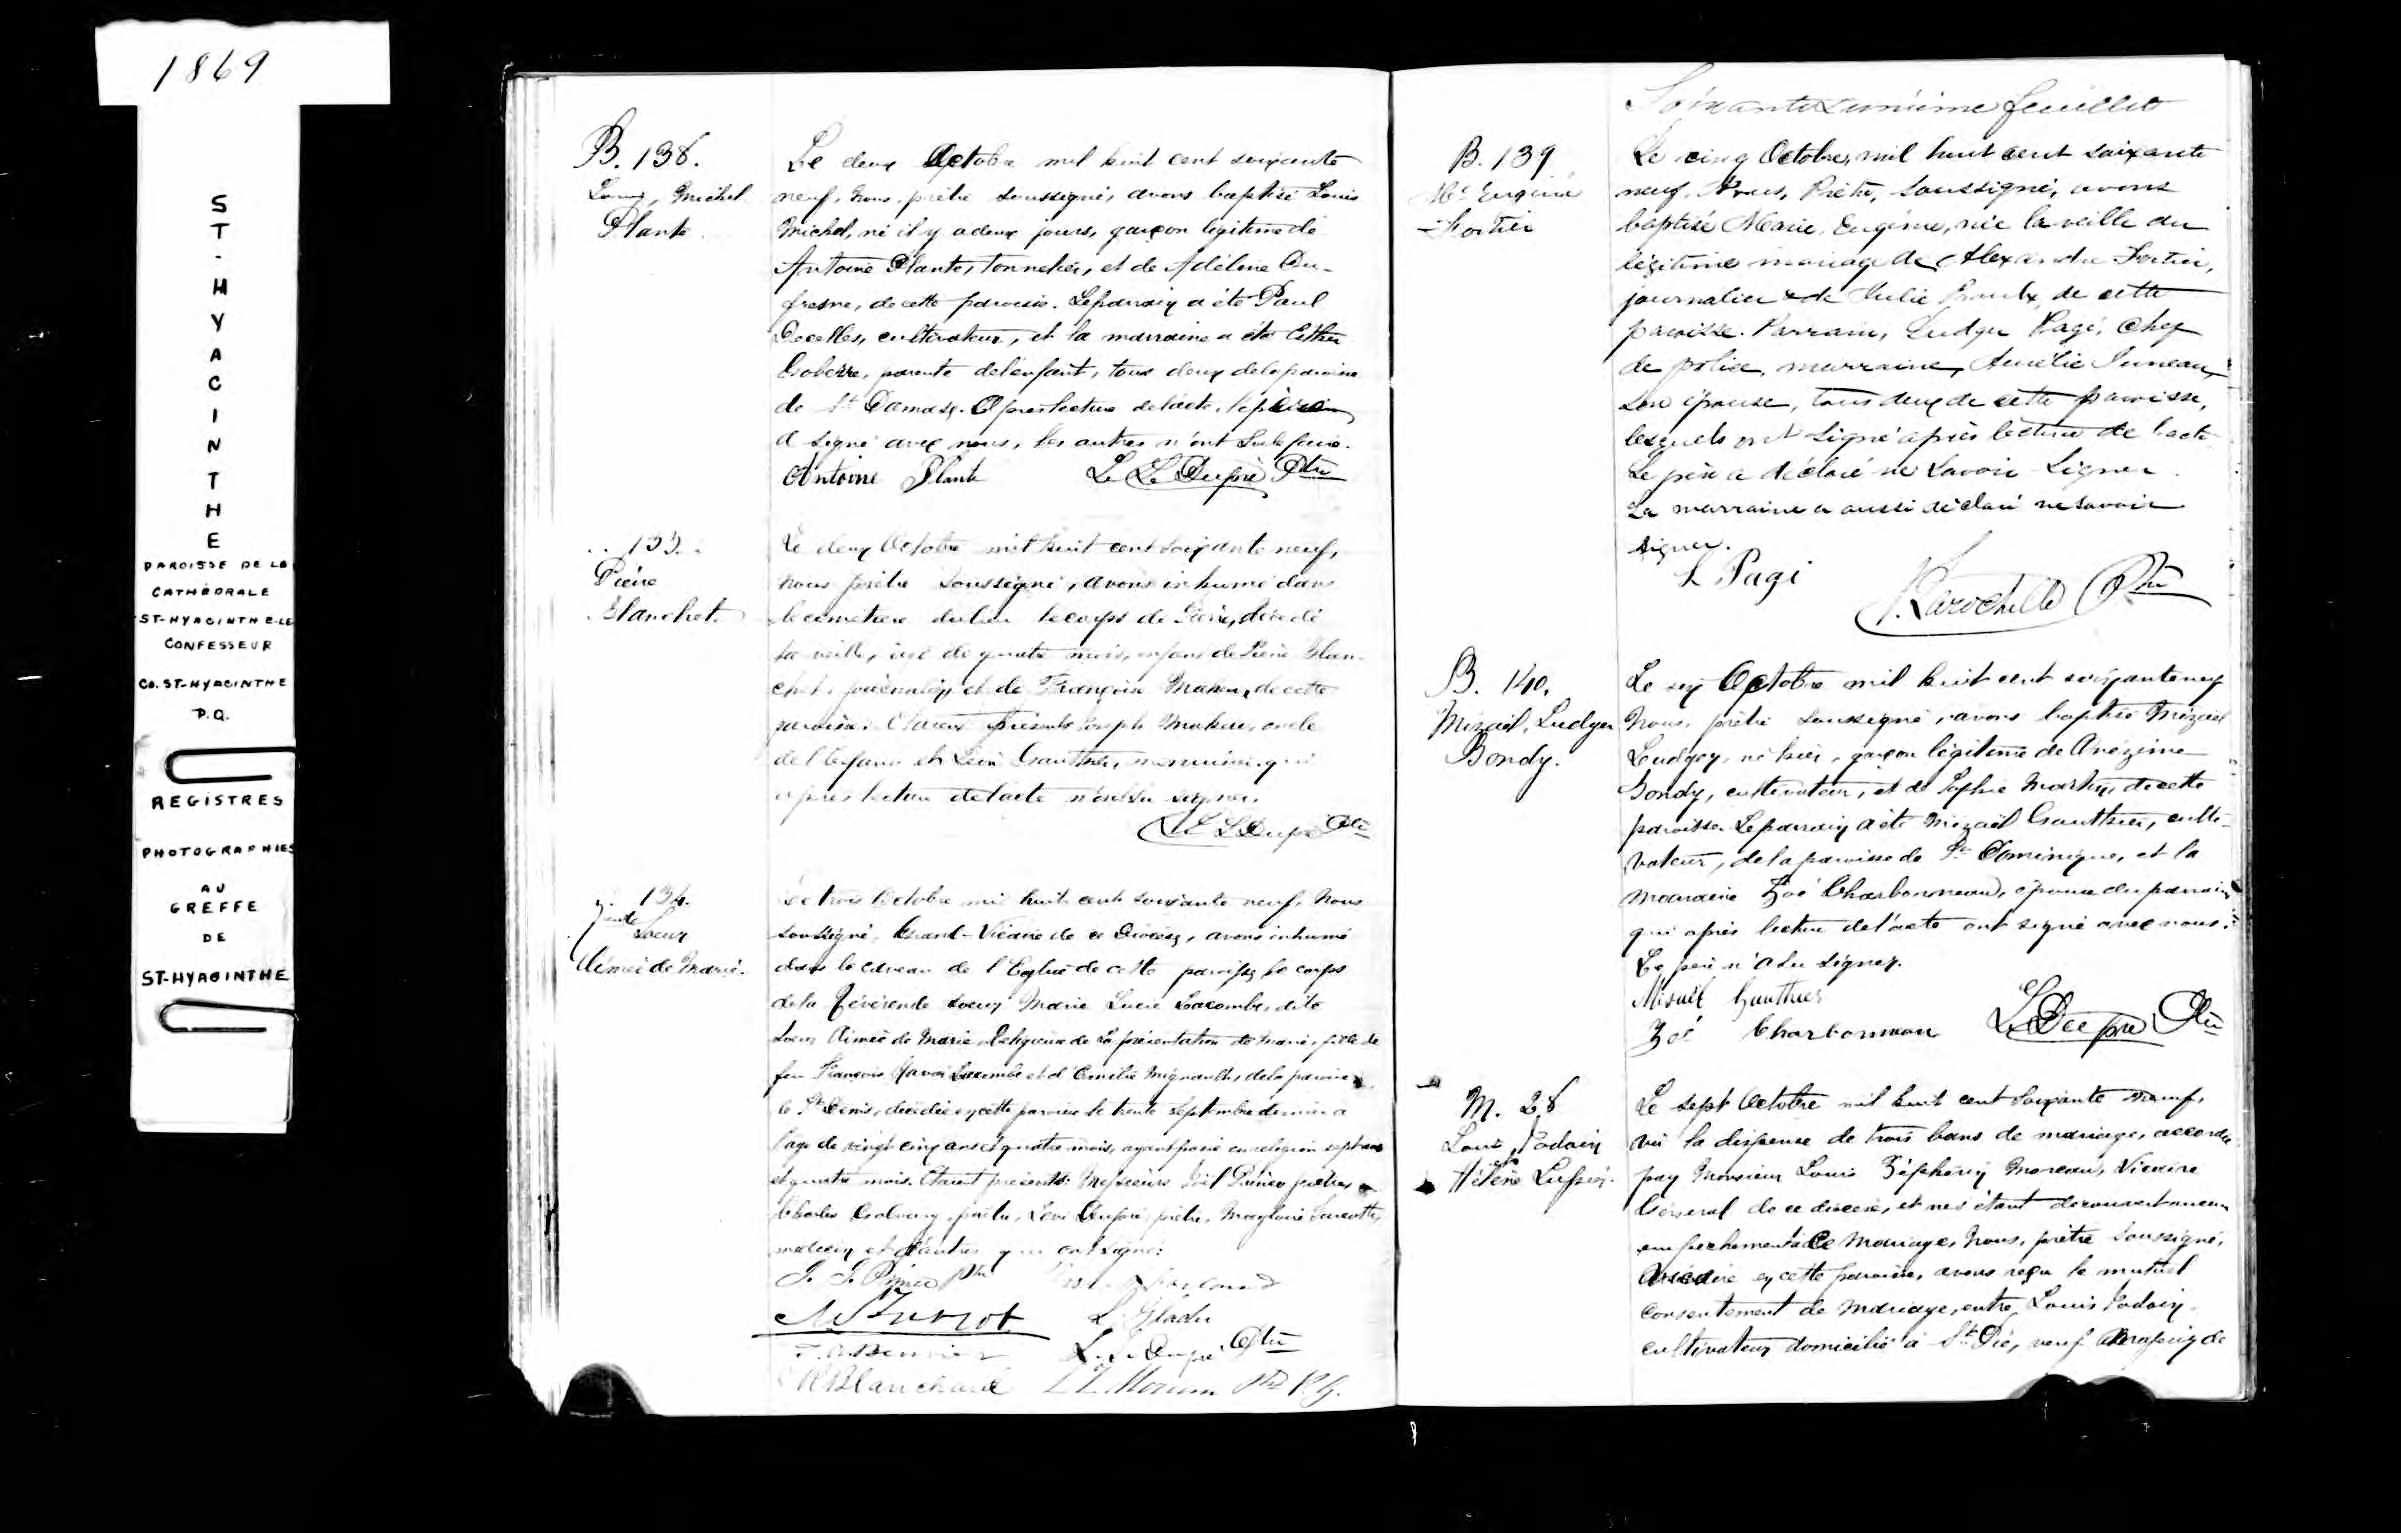 1869
ST-HYACINTHE
PAROISSE DE LA
CATHÉDRALE
ST-HYACINTHE-LE
CONFESSEUR
CO. ST-HYACINTHE
P.Q.
REGISTRES
PHOTOGRAPHIES
AU
GREFFE
DE
ST-HYACINTHE
B. 138.
Louis, Michel
Plante
Le deux Octobre mil huit cent soixante
neuf, nous, prêtre soussigné, avons baptisé Louis
Michel, né il y a deux jours, garçon légitime de
Antoine Plante, tonnelier, et de Adéline Du-
fresne, de cette paroisse. Le parrain a été Paul
Decelles, cultivateur, et la marraine a été Esther
parente de l'enfant, tous deux de la paroisse
de St Damase. Après lecture de l'acte, le
a signé avec nous, les autres n'ont su le faire.
Antoine Plante L. L. Dupré Ptre
133.
Pierre
Blanchet.
Le deux Octobre mil huit cent soixante neuf,
nous prêtre soussigné, avons inhumé dans
le cimetière du lieu le corps de Pierre, décédé
la veille, âgé de quatre mois, enfant de Pierre Blan-
chet, journalier et de Françoise de cette
paroisse. Etaient présents Joseph oncle
de l'enfant et Léon Gauthier, menuisier, qui
après lecture de l'acte n'ont su signer.
L. L. Dupré Ptre
134.
Soeur
Aimée de Marie.
Le trois Octobre mil huit cent soixante neuf, Nous
soussigné, Grand-Vicaire de ce Diocèse, avons inhumé
dans le caveau de l'Eglise de cette paroisse, le corps
de la Révérende Soeur Marie Lucie Lacombe, dite
Soeur Aimée de Marie, Religieuse de la présentation de Marie, fille de
feu François Xavier Lacombe et d'Emélie Mignault, de la paroisse
de St Denis, décédée en cette paroisse le trente Septembre dernier à
l'age de vingt cinq ans et quatre mois, ayant passé en religion sept ans
et quatre mois. Etaient présents: Messieurs Joël Prince prêtre
Charles prêtre, Levi Dupré, prêtre, Magloire Turcotte,
médecin et d'autres qui ont signé:
J. J. Prince Ptre
M. Turcot L. Gladu
L. L. Dupré Ptre
Blanchard L. Z. Moreau Ptre V.G.
Soixante feuillet
B. 139
Mie Eugénie
Fortier
Le cinq Octobre, mil huit cent soixante
neuf, Nous, Prêtre, soussigné, avons
baptisé Marie, Eugénie, née la veille du
légitime mariage de Alexandre Fortier,
journalier & de Julie Proulx, de cette
paroisse. Parrain, Ludger Pagé, chef
de police, marraine, Aurélie Juneau,
son épouse, tous deux de cette paroisse,
lesquels ont signé après lecture de l'acte
Le père a déclaré ne savoir signer.
La marraine a aussi déclaré ne savoir
signer.
L Pagé
Larochelle Ptre
B. 140.
Mizaël, Ludger
Bondy.
Le six Octobre mil huit cent soixante neuf
Nous, prêtre soussigné, avons baptisé Mizaël
Ludger, né hier, garçon légitime de Onézime
Bondy, cultivateur, et de Sophie Martin, de cette
paroisse. Le parrain a été Mizaël Gauthier, culti-
vateur, de la paroisse de St Dominique, et la
marraine Zoé Charbonneau, épouse du parrain
qui après lecture de l'acte ont signé avec nous.
Le père n'a su signer.
Misaël Gauthier
Zoé Charbonneau L. L. Dupré Ptre
M. 28
Louis Jodoin
et
Hélène Lussier.
Le sept Octobre mil huit cent soixante neuf,
vu la dispense de trois bans de mariage, accordée
par Monsieur Louis Zéphirin Moreau, Vicaire
Général de ce diocèse, et ne s'étant découvert aucun
empêchement de mariage, Nous, prêtre soussigné,
vicaire en cette paroisse, avons reçu le mutuel
consentement de mariage, entre Louis Jodoin
cultivateur, domicilié à St. Pie, veuf majeur de